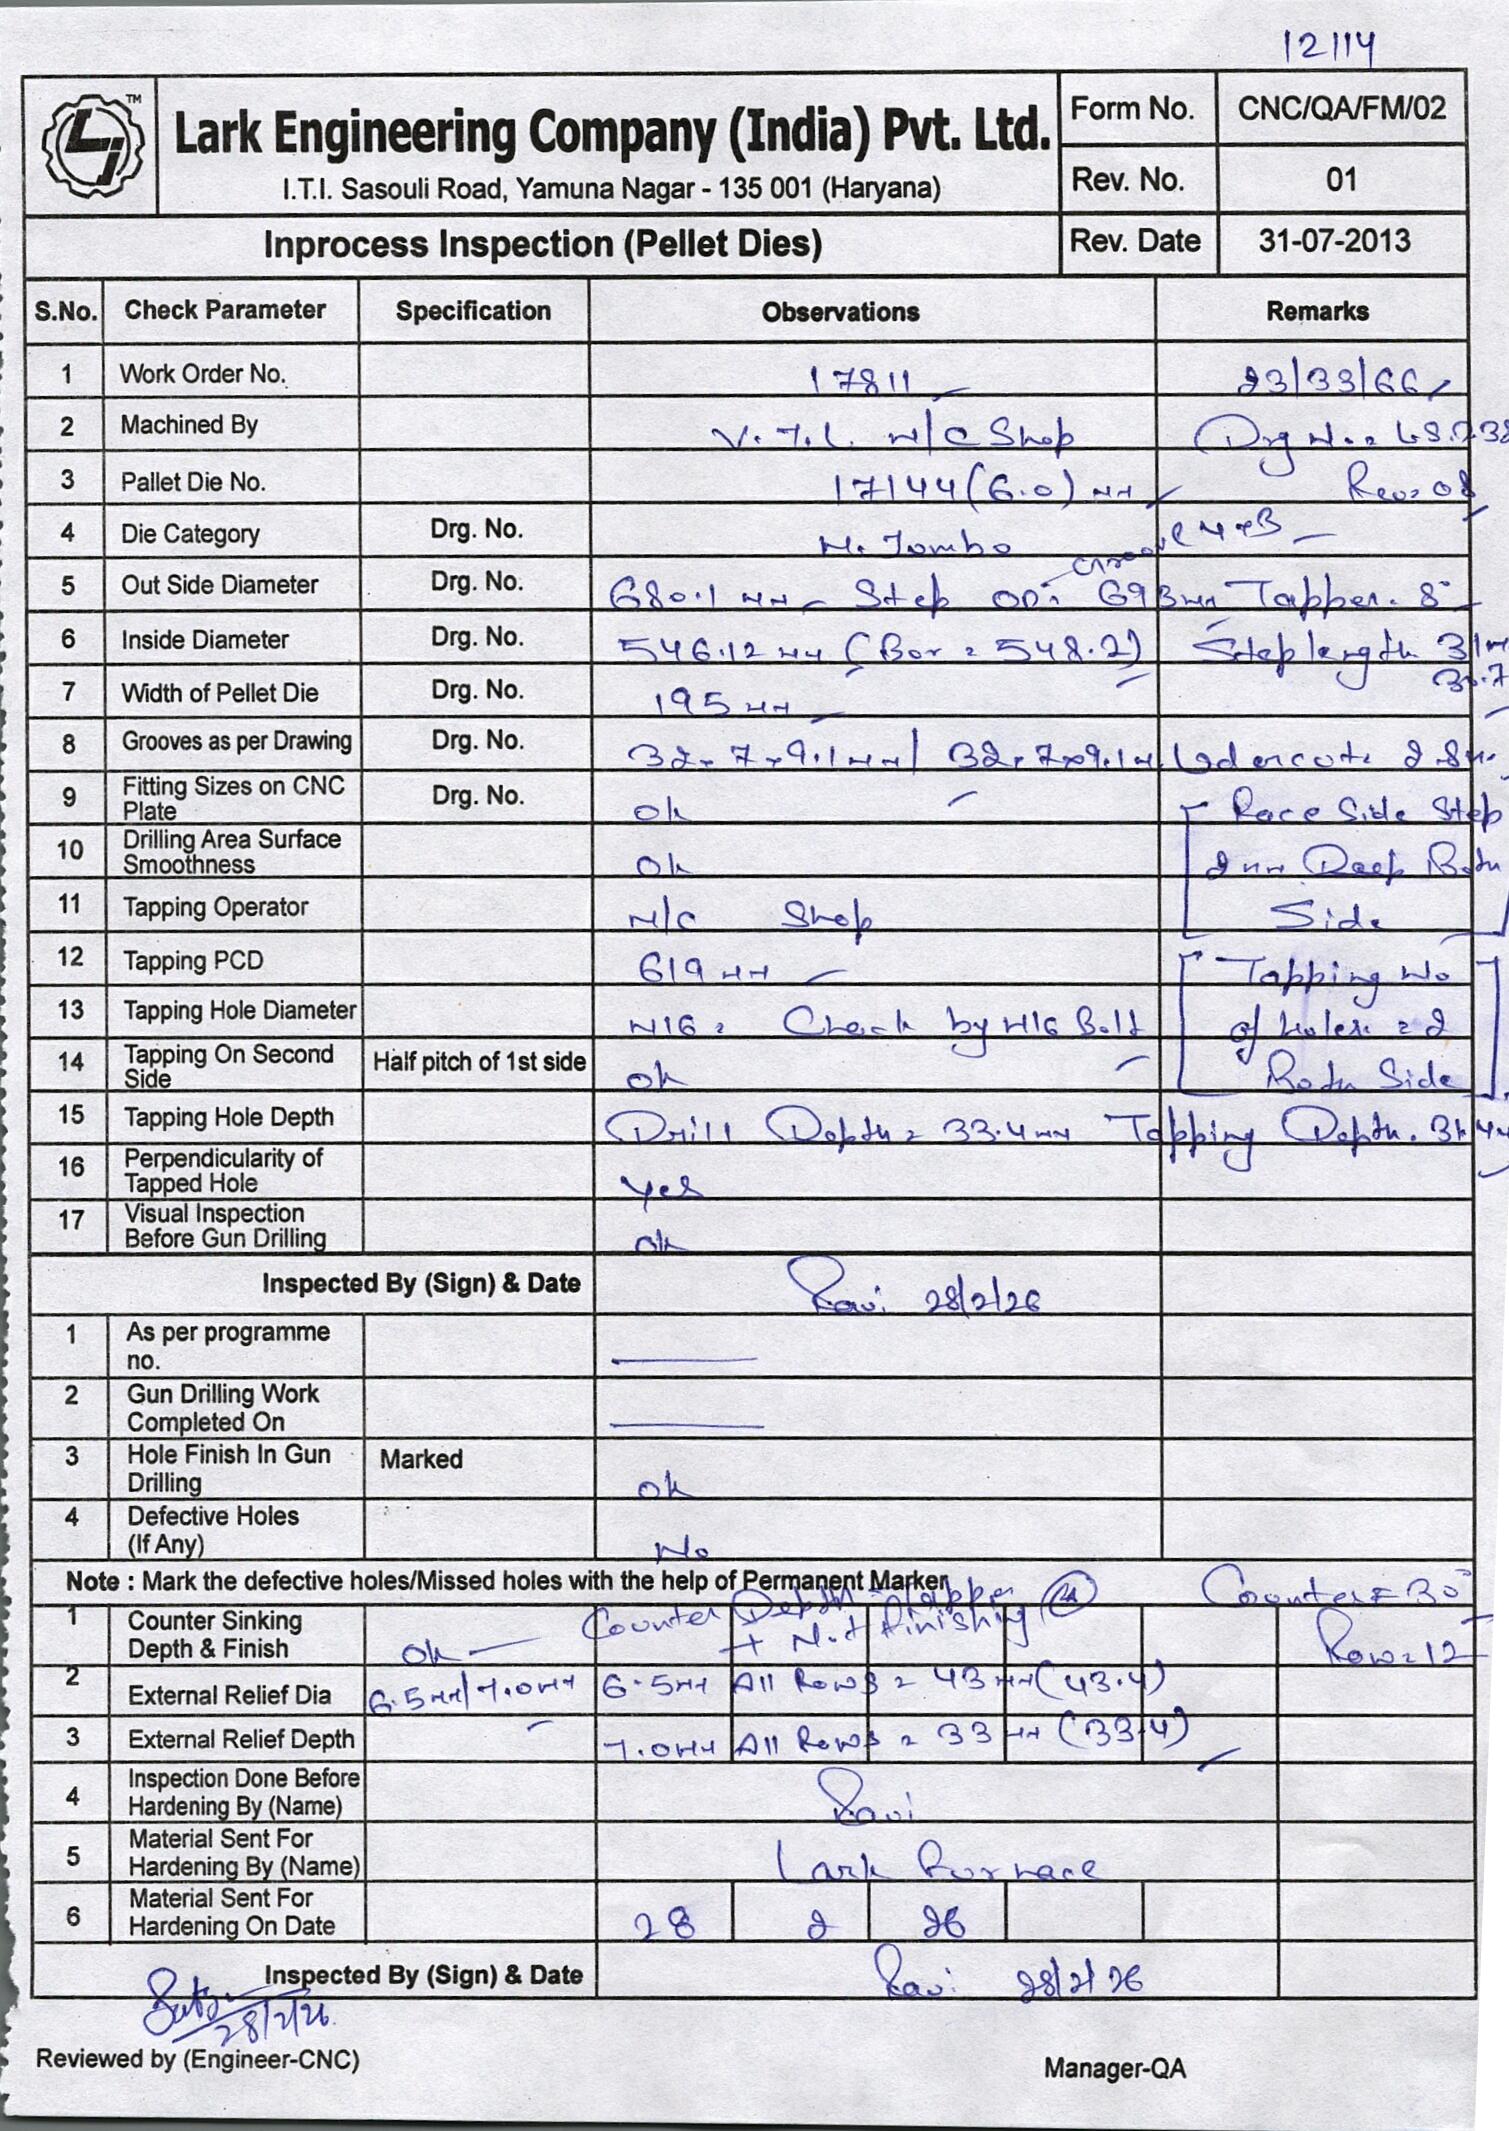 12114
LJ TM
Lark Engineering Company (India) Pvt. Ltd.
I.T.I. Sasouli Road, Yamuna Nagar - 135 001 (Haryana)
Form No. CNC/QA/FM/02
Rev. No. 01
Inprocess Inspection (Pellet Dies) Rev. Date 31-07-2013
S.No. Check Parameter Specification Observations Remarks
1 Work Order No. 17811 23/33/66
2 Machined By V.T.L. M/C Shop Drg No.
3 Pallet Die No. 17144 (6.0) mm Rev: 08
4 Die Category Drg. No. M. Jombo
5 Out Side Diameter Drg. No. 680.1 mm Step OD: 693mm Tapper. 8°
6 Inside Diameter Drg. No. 546.12 mm (Bor = 548.2) Step length 31m
30.7
7 Width of Pellet Die Drg. No. 195 mm
8 Grooves as per Drawing Drg. No. 32x7x9.1mm/ 32x7x9.1m Udercut:
9 Fitting Sizes on CNC Plate Drg. No. ok Race Side Step
10 Drilling Area Surface Smoothness ok 2mm Deep Both
11 Tapping Operator M/C Shop Side
12 Tapping PCD 619 mm Tapping No
13 Tapping Hole Diameter M16: Check by M16 Bolt of holes = 2
14 Tapping On Second Side Half pitch of 1st side ok Both Side
15 Tapping Hole Depth Drill Depth = 33.4mm Tapping Depth.
16 Perpendicularity of Tapped Hole Yes
17 Visual Inspection Before Gun Drilling ok
Inspected By (Sign) & Date Ravi 28/2/26
1 As per programme no.
2 Gun Drilling Work Completed On
3 Hole Finish In Gun Drilling Marked ok
4 Defective Holes (If Any) No
Note : Mark the defective holes/Missed holes with the help of Permanent Marker
Counter Depth Tapper Counter = 30°
1 Counter Sinking Depth & Finish ok Finishing Row = 12
2 External Relief Dia 6.5mm/7.0mm 6.5mm All Rows = 43 mm (43.4)
3 External Relief Depth 7.0mm All Rows = 33 mm (33.4)
4 Inspection Done Before Hardening By (Name) Ravi
5 Material Sent For Hardening By (Name) Lark Furnace
6 Material Sent For Hardening On Date 28 2 26
Inspected By (Sign) & Date Ravi 28/2/26
28/2/26
Reviewed by (Engineer-CNC)
Manager-QA